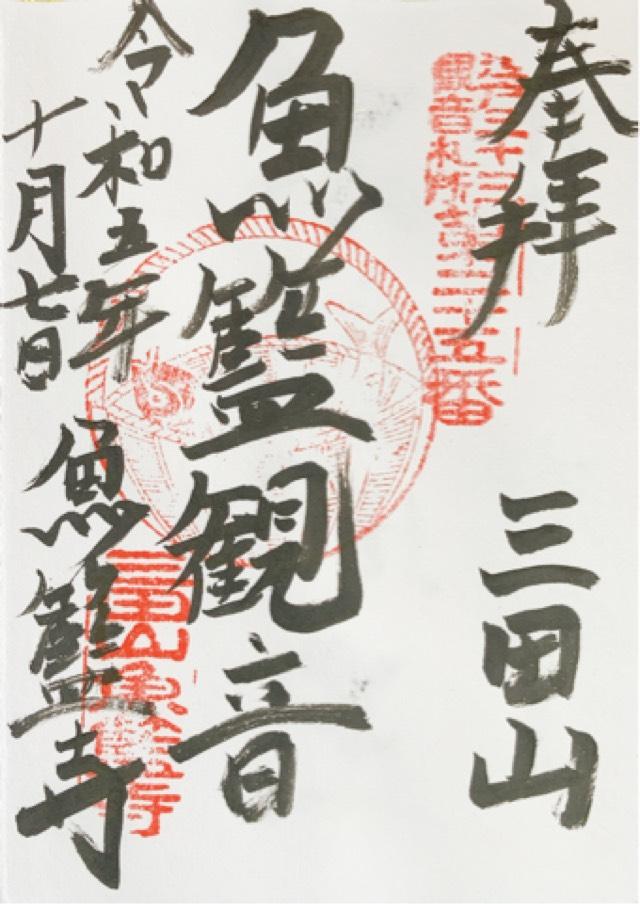 奉拝 三田山
江戸三十三
観音札所第二十五番
魚籃観音
令和五年
十月七日 魚籃寺
三田山魚籃寺